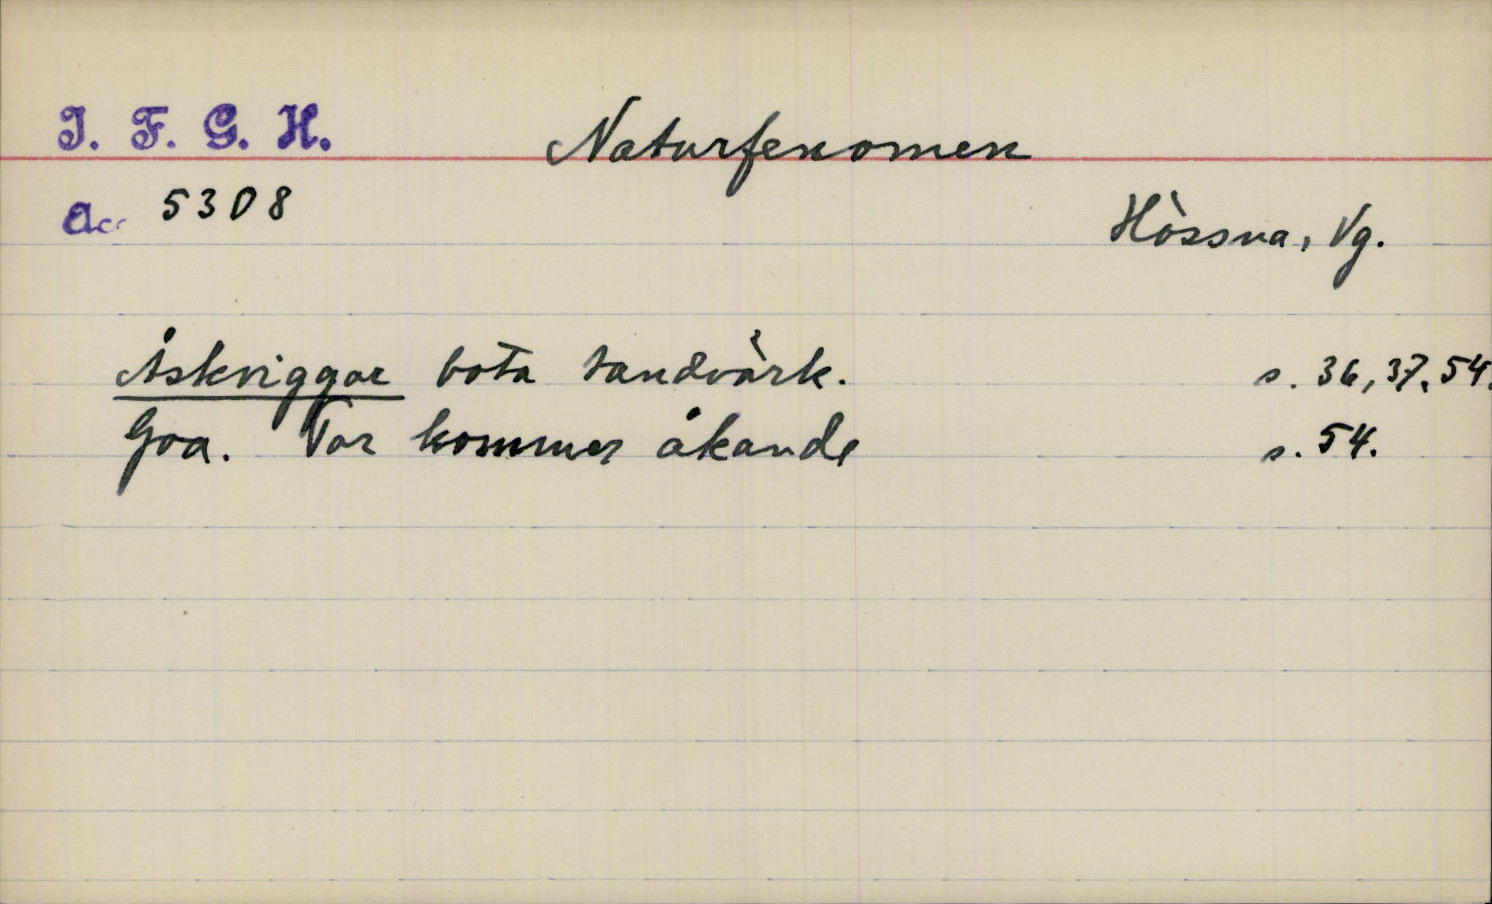 I. F. G. H.
Naturfenomen
Acc 5308
Hössna, Vg.
Åskviggar bota tandvärk. s. 36, 37, 54.
Goa. Tor kommer åkande s. 54.